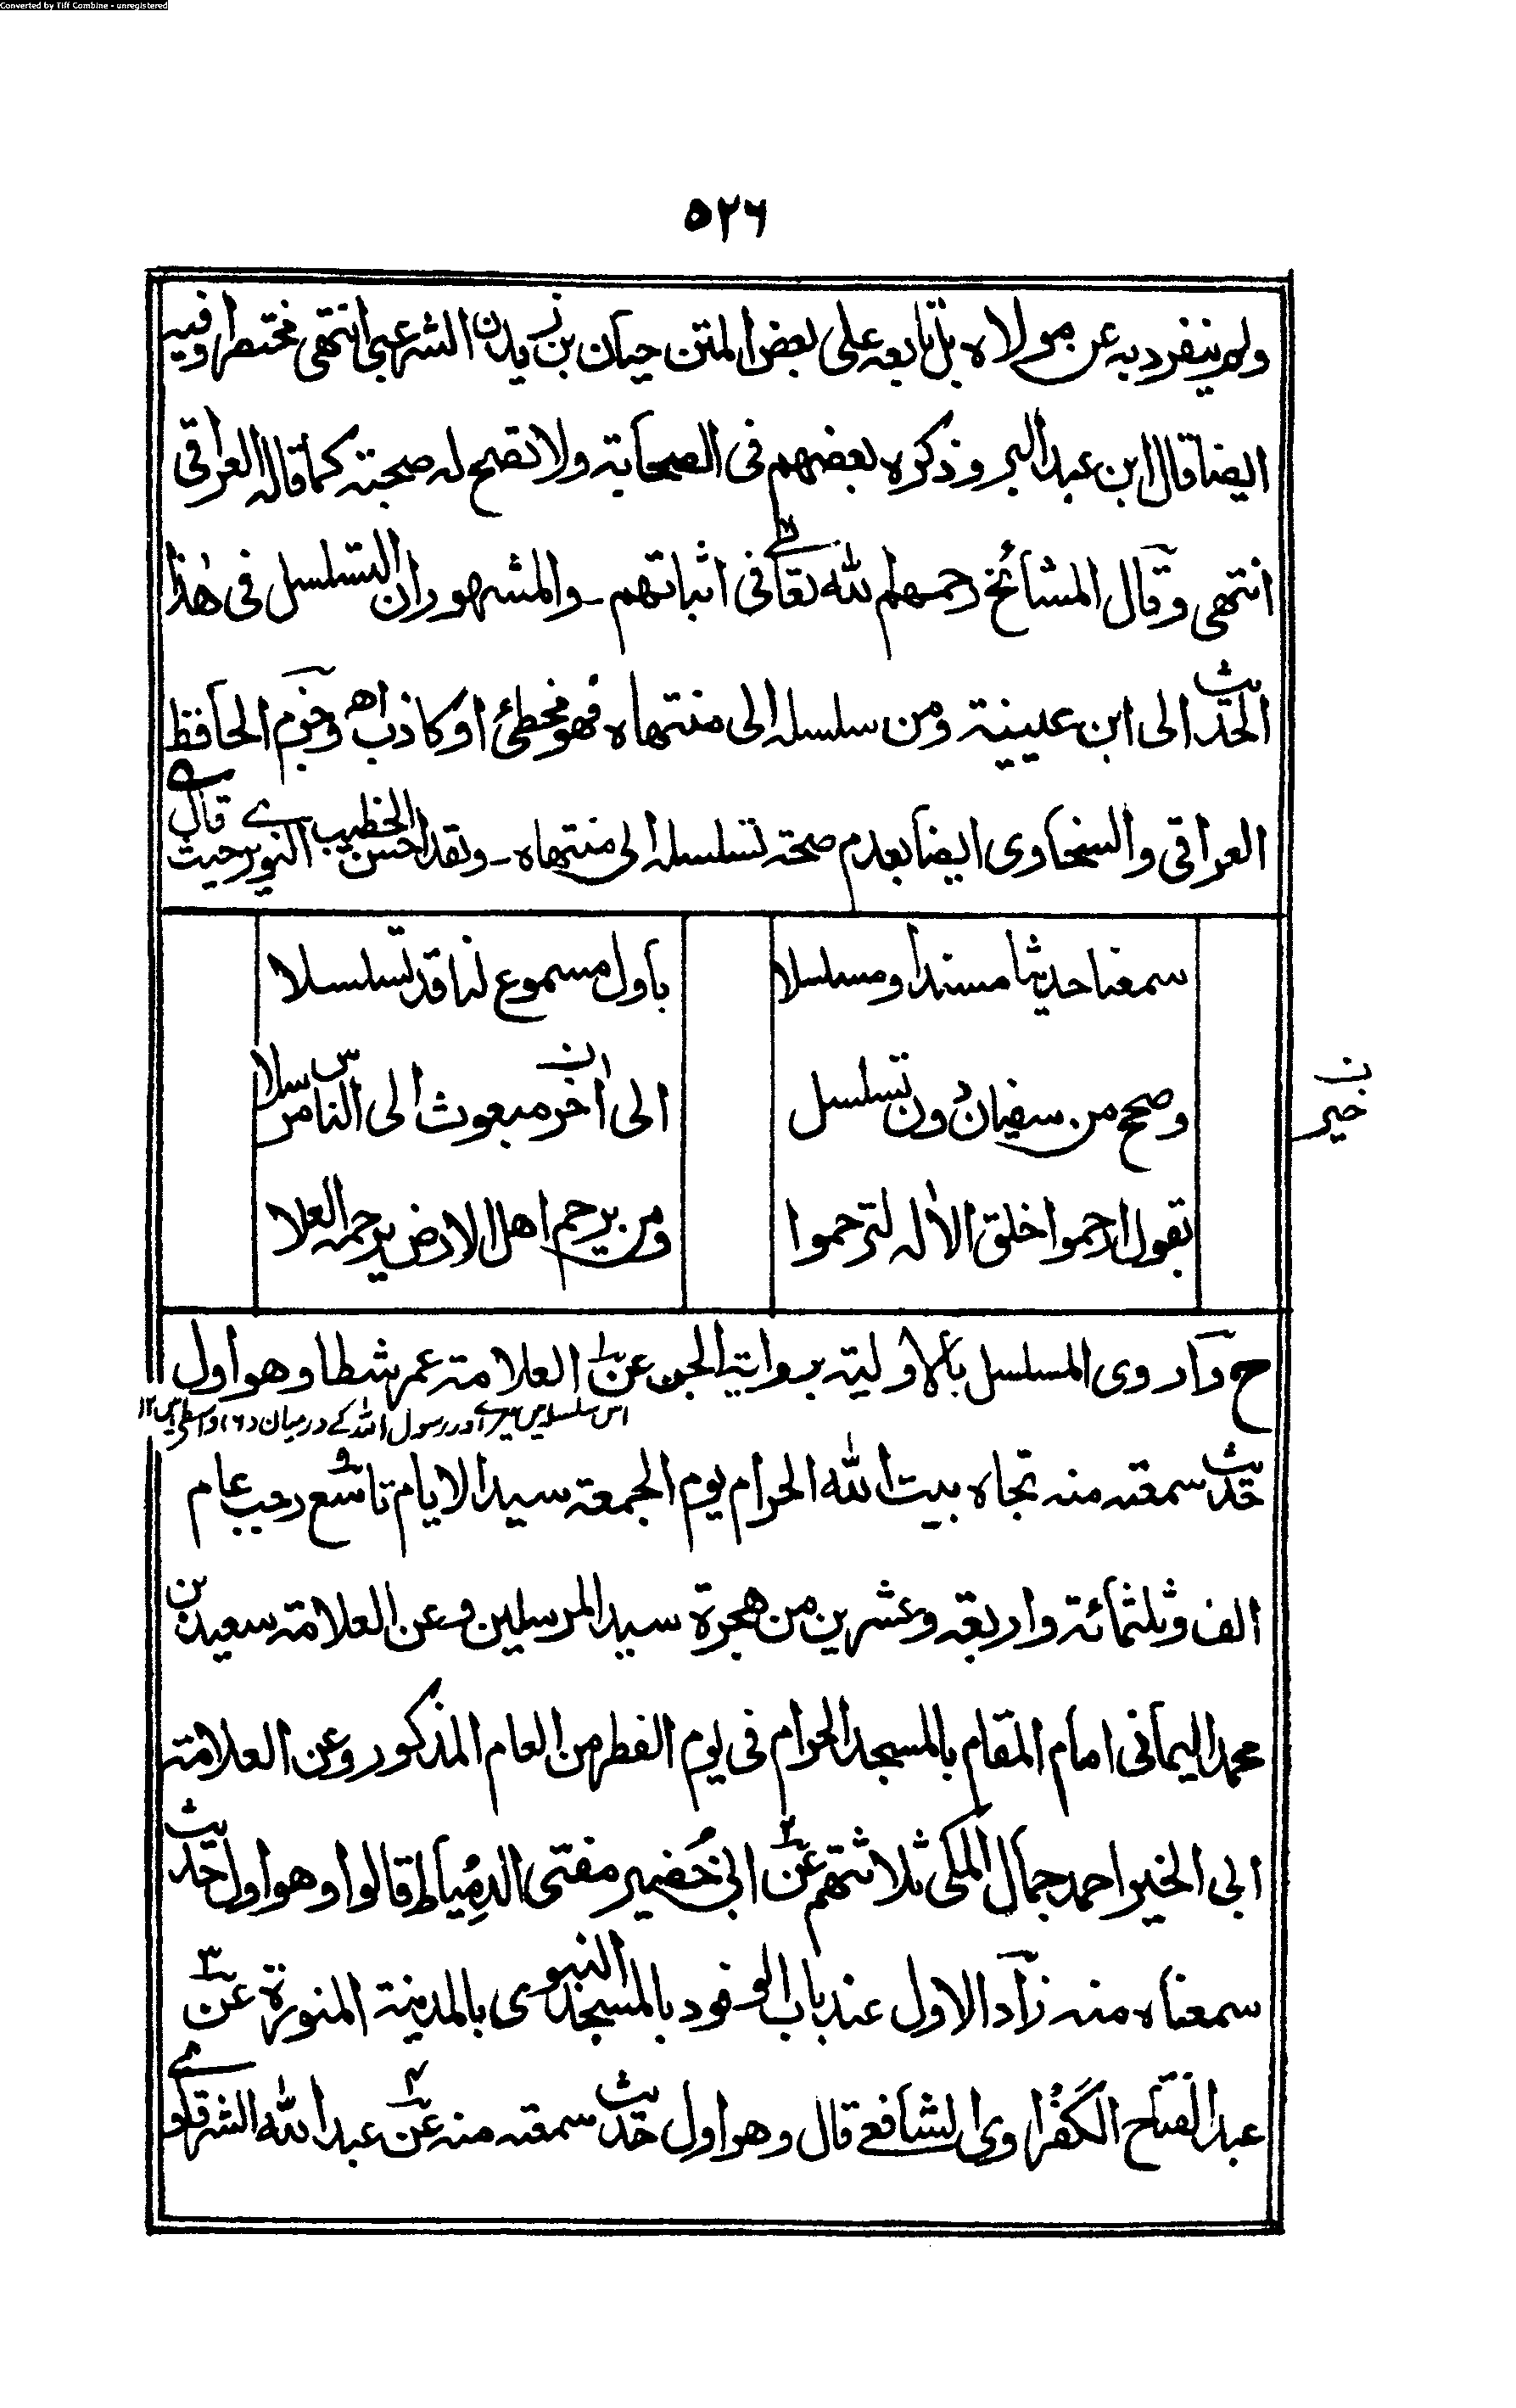 Converted by Tiff Combine - unregistered
۵۲۶
ولم ينفرد به عن مولاه بل تابعه على بعض المتن حبان بن زيد ن الشرعبى انتهى مختصرا وفيه
ايضا قال ابن عبد البر وذكره بعضهم فى الصحابة ولا تصح له صحبة كما قاله العراقى
انتهى وقال المشائخ رحمهم الله تعالى فى اثباتهم - والمشهور ان التسلسل فى هٰذا
الحديث الى ابن عيينة ومن سلسله الى منتهاه فهو مخطئ او كاذب اهـ وجزم الحافظ
العراقى والسخاوى ايضا بعدم صحة تسلسله الى منتهاه - ولقد احسن الخطيب النويرى حيث قال
سمعنا حديثا مسندا ومسلسلا باول مسموع لنا قد تسلسلا
وصح من سفيان دون تسلسل الى اخر مبعوث الى الناس مرسلا
خير ن
يقول ارحموا خلق الاله لترحموا ومن يرحم اهل الارض يرحمه العلا
ح وآروى المسلسل بالاولية برواية الجن عن ۱ العلامة عمر شطا وهو اول
اس سلسلہ میں میرے اور رسول اللہ کے درمیان (۶) واسطے ہیں ۱۲
حديث سمعته منه تجاه بيت الله الحرام يوم الجمعة سيد الايام تاسع رجب عام
الف وثلثمائة واربعة وعشرين من هجرة سيد المرسلين وعن العلامة سعيد بن
محمد اليمانى امام المقام بالمسجد الحرام فى يوم الفطر من العام المذكور وعن العلامة
ابى الخير احمد جمال المكى ثلاثتهم عن ۲ ابى خُضير مفتى الدِمياط قالوا وهو اول حديث
سمعناه منه زآد الاول عند باب الوفود بالمسجد النبوى بالمدينة المنورة عن ۳
عبد الفتاح الكَفْراوى الشافعى قال وهو اول حديث سمعته منه عن ۴ عبد الله الشرقاوى